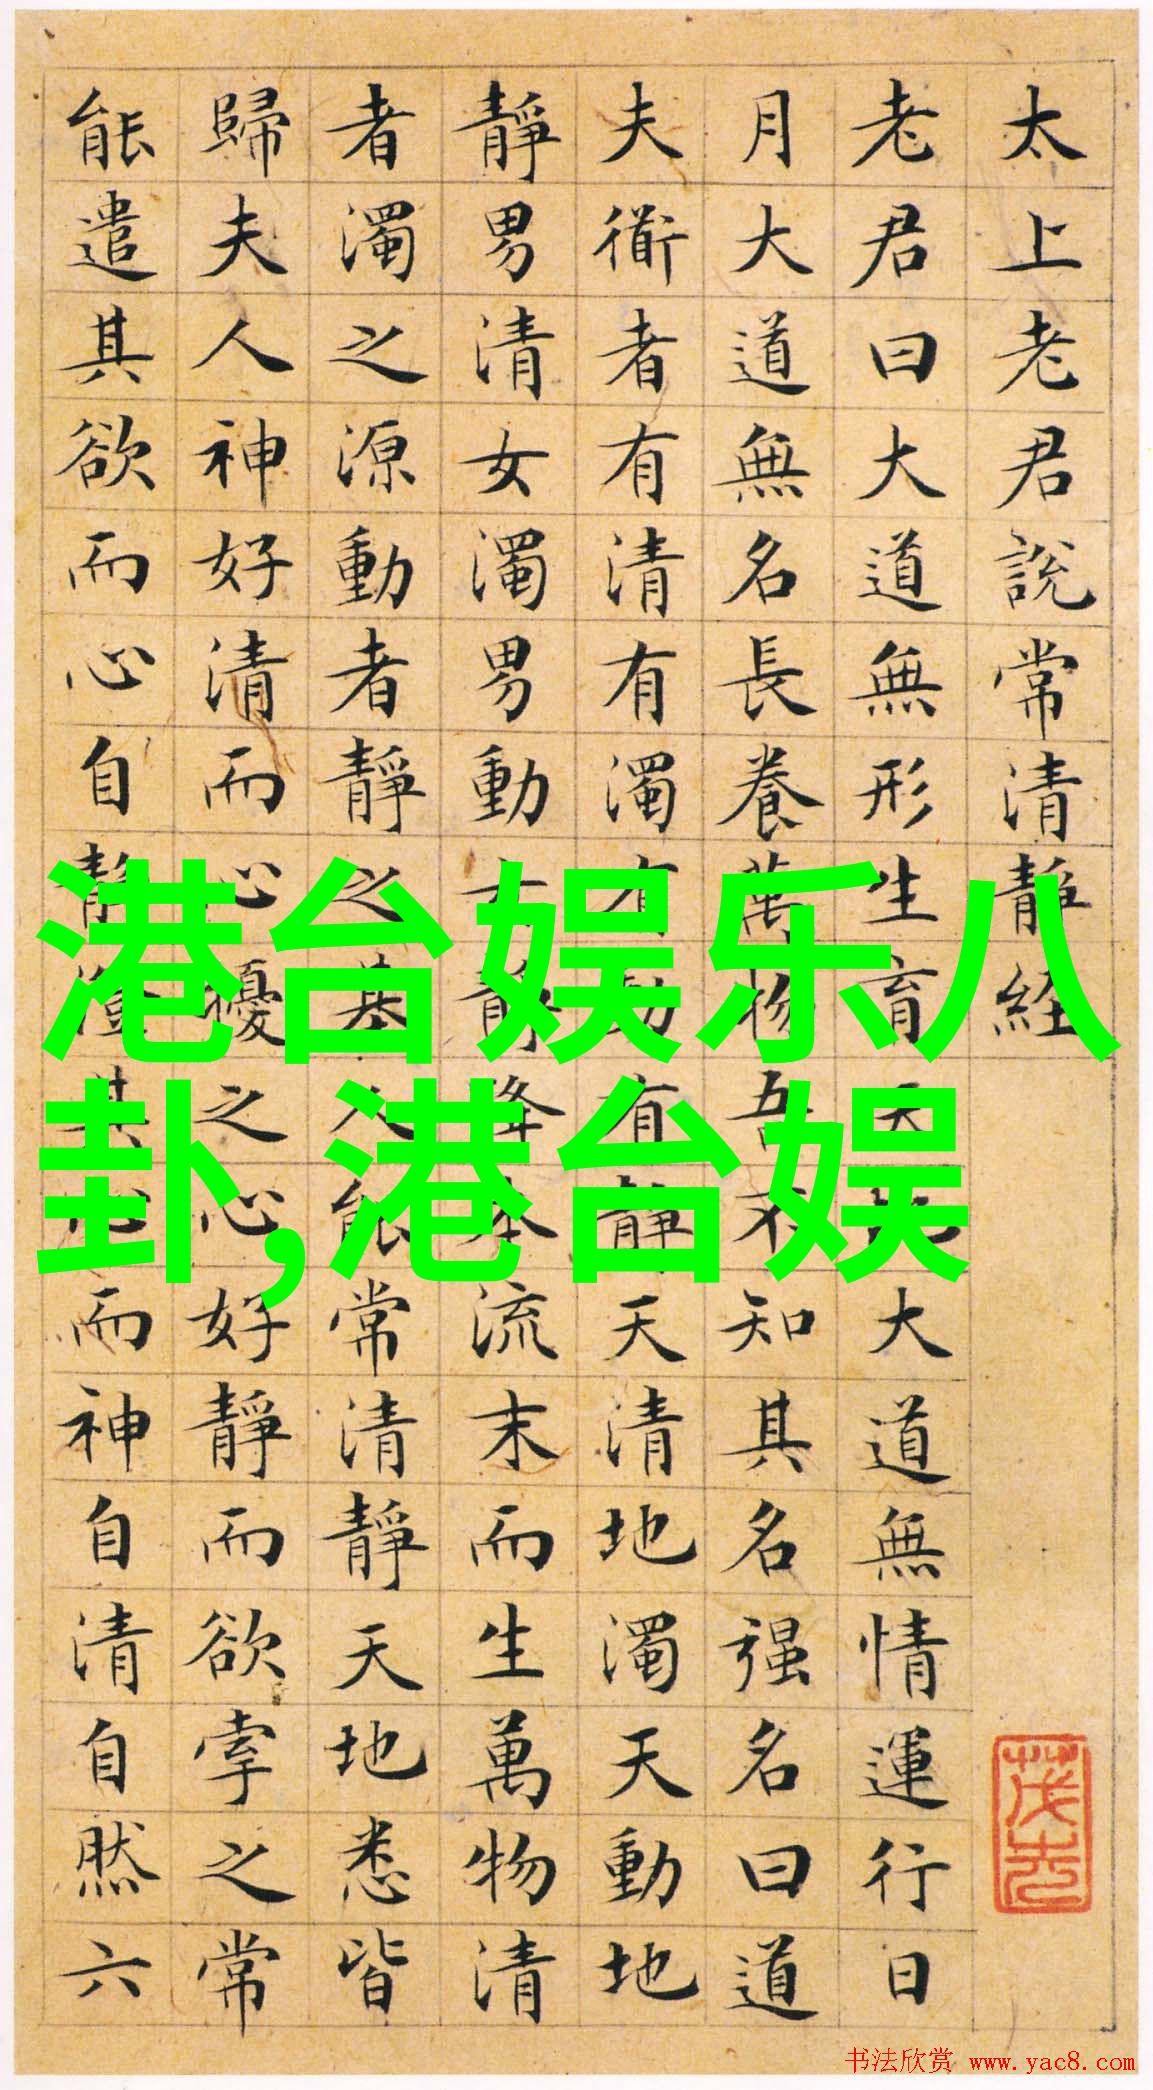 太上老君說常清靜経
老君曰大道無形生育天地大道無情運行日
月大道無名長養萬物吾不知其名强名曰道
夫衜者有清有濁有動有靜天清地濁天動地
靜男清女濁男動女靜降本流末而生萬物清
者濁之源動者靜之基人能常清靜天地悉皆
歸夫人神好清而心擾之心好靜而欲牽之常
能遣其欲而心自靜澄其心而神自清自然六
港台娱乐八
卦,港台娱
书法欣赏 www.yac8.com